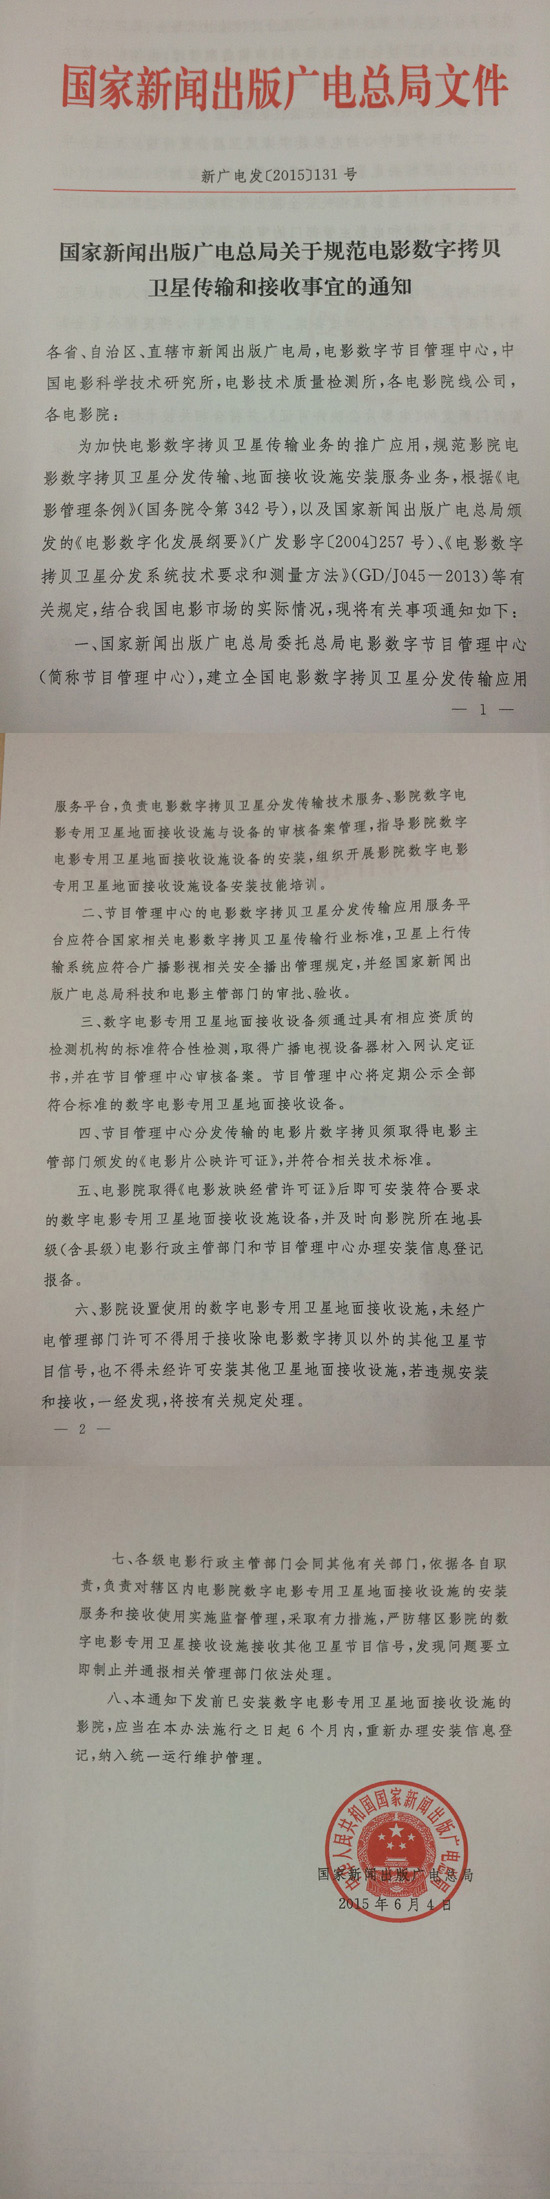 国家新闻出版广电总局文件
新广电发〔2015〕131号
国家新闻出版广电总局关于规范电影数字拷贝
卫星传输和接收事宜的通知
各省、自治区、直辖市新闻出版广电局,电影数字节目管理中心,中
国电影科学技术研究所,电影技术质量检测所,各电影院线公司,
各电影院:
为加快电影数字拷贝卫星传输业务的推广应用,规范影院电
影数字拷贝卫星分发传输、地面接收设施安装服务业务,根据《电
影管理条例》(国务院令第342号),以及国家新闻出版广电总局颁
发的《电影数字化发展纲要》(广发影字〔2004〕257号)、《电影数字
拷贝卫星分发系统技术要求和测量方法》(GD/J045—2013)等有
关规定,结合我国电影市场的实际情况,现将有关事项通知如下:
一、国家新闻出版广电总局委托总局电影数字节目管理中心
(简称节目管理中心),建立全国电影数字拷贝卫星分发传输应用
— 1 —
服务平台,负责电影数字拷贝卫星分发传输技术服务、影院数字电
影专用卫星地面接收设施与设备的审核备案管理,指导影院数字
电影专用卫星地面接收设施设备的安装,组织开展影院数字电影
专用卫星地面接收设施设备安装技能培训。
二、节目管理中心的电影数字拷贝卫星分发传输应用服务平
台应符合国家相关电影数字拷贝卫星传输行业标准,卫星上行传
输系统应符合广播影视相关安全播出管理规定,并经国家新闻出
版广电总局科技和电影主管部门的审批、验收。
三、数字电影专用卫星地面接收设备须通过具有相应资质的
检测机构的标准符合性检测,取得广播电视设备器材入网认定证
书,并在节目管理中心审核备案。节目管理中心将定期公示全部
符合标准的数字电影专用卫星地面接收设备。
四、节目管理中心分发传输的电影片数字拷贝须取得电影主
管部门颁发的《电影片公映许可证》,并符合相关技术标准。
五、电影院取得《电影放映经营许可证》后即可安装符合要求
的数字电影专用卫星地面接收设施设备,并及时向影院所在地县
级(含县级)电影行政主管部门和节目管理中心办理安装信息登记
报备。
六、影院设置使用的数字电影专用卫星地面接收设施,未经广
电管理部门许可不得用于接收除电影数字拷贝以外的其他卫星节
目信号,也不得未经许可安装其他卫星地面接收设施,若违规安装
和接收,一经发现,将按有关规定处理。
— 2 —
七、各级电影行政主管部门会同其他有关部门,依据各自职
责,负责对辖区内电影院数字电影专用卫星地面接收设施的安装
服务和接收使用实施监督管理,采取有力措施,严防辖区影院的数
字电影专用卫星接收设施接收其他卫星节目信号,发现问题要立
即制止并通报相关管理部门依法处理。
八、本通知下发前已安装数字电影专用卫星地面接收设施的
影院,应当在本办法施行之日起6个月内,重新办理安装信息登
记,纳入统一运行维护管理。
中华人民共和国国家新闻出版广电总局
国家新闻出版广电总局
2015年6月4日